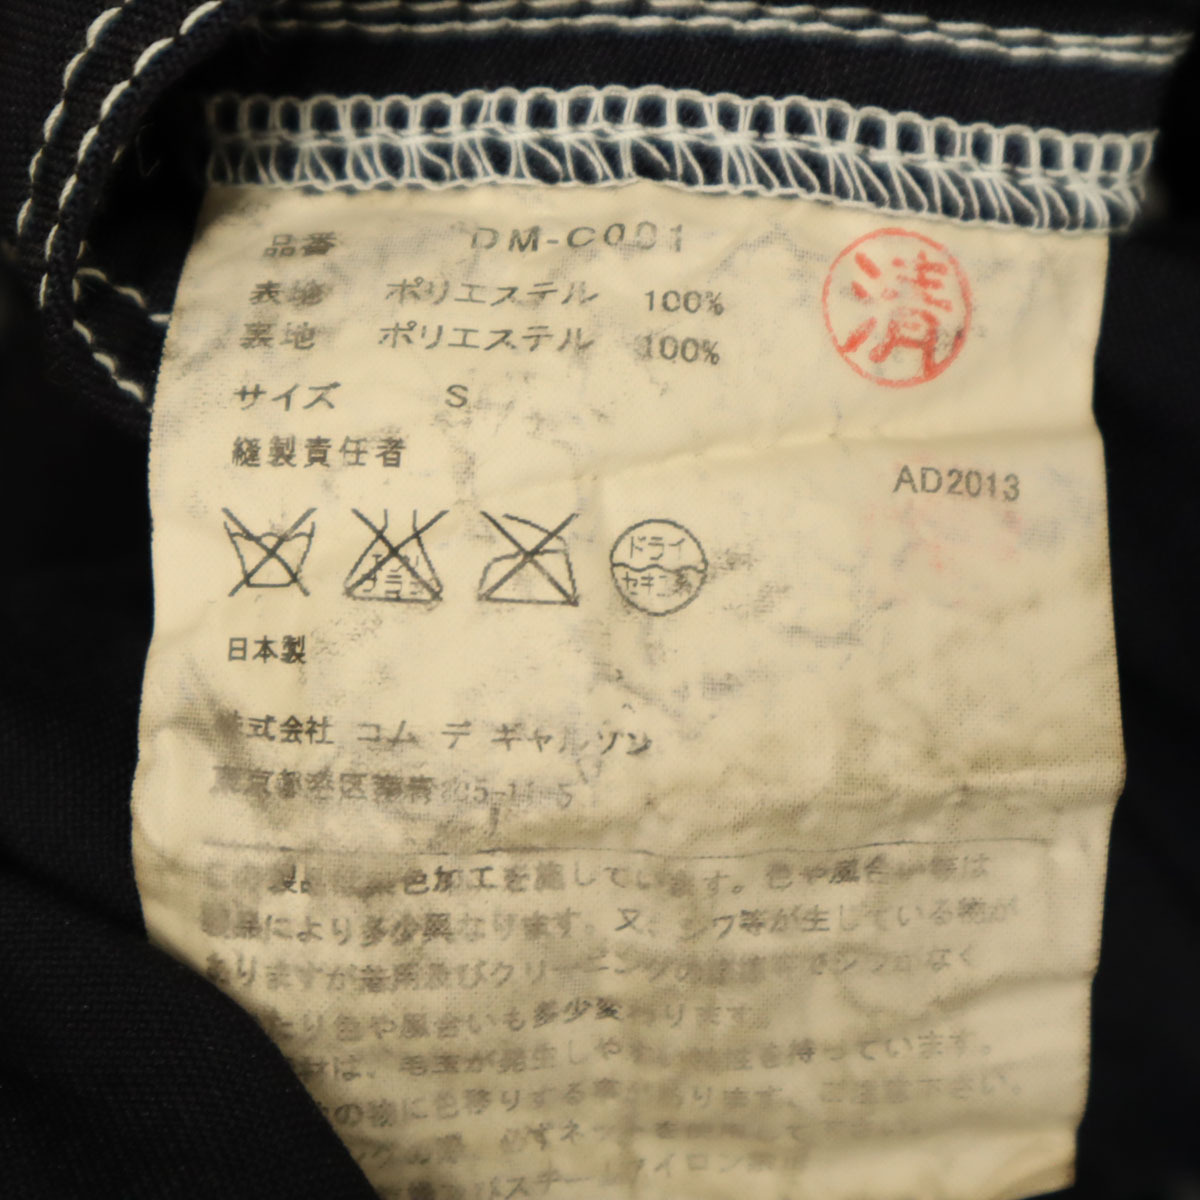 品番 DM-C001
清
表地 ポリエステル 100%
裏地 ポリエステル 100%
サイズ S
縫製責任者
AD2013
エンソ
サラシ
ドライ
セキユ系
日本製
株式会社 コム デ ギャルソン
東京都港区南青山5-11-5
この製品は 色加工を施しています。色や風合い等は
製品により多少異なります。又、シワ等が生じている物が
ありますが着用及びクリーニングの
色や風合いも多少変わります。
は、毛玉が発生しやすい特性を持っています。
の物に色移りする事があります。ご注意下さい。
必ずネットを使用して下さい。